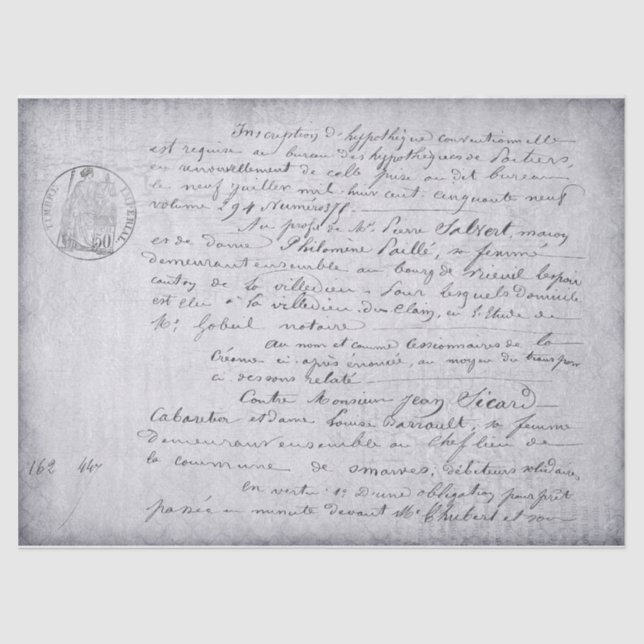 Inscription d'hypothèque conventionnelle
est requise au bureau des hypothèques de Poitiers,
en renouvellement de celle prise au dit bureau
le neuf juillet mil huit cent cinquante neuf
volume 294 Numéro
Au profit de Mr. Pierre Salvert, maçon
et de dame Philomène Paillé, sa femme
demeurant ensemble au bourg de Nieuil lespoir
canton de La villedieu. Pour lesquels Domicile
est élu à La villedieu du Clain, en l'Etude de
Me Gobeil notaire
au nom et comme cessionnaires de la
Créance ci-après énoncée, au moyen du transport
ci dessous relaté
Contre Monsieur Jean Sicard
Cabaretier et dame Louise Barrault, sa femme
demeurant ensemble au chef lieu de
la commune de smarves, débiteurs solidaires
en vertu 1o D'une obligation pour prêt
passée en minute devant Me et son
TIMBRE IMPERIAL
50
162 447